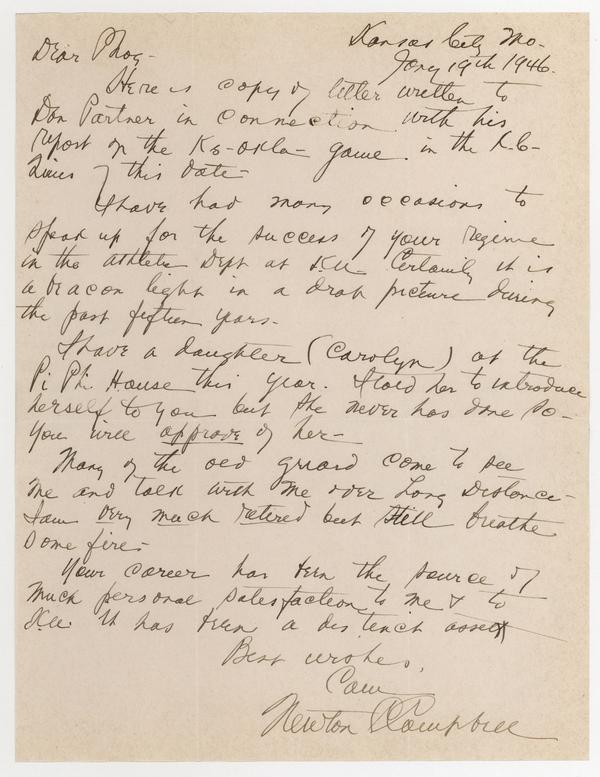 Kansas City Mo-
Jany 19th 1946.
Dear Phog-
Here is copy of letter written to
Don Partner in connection with his
report on the Ks-Okla- game. in the K.C-
Times of this date-
I have had many occasions to
speak up for the success of your regime
in the athletic Dept at K.U- Certainly it is
a beacon light in a drab picture during
the past fifteen years-
I have a daughter (Carolyn) at the
Pi Phi House this year. I told her to introduce
herself to you but she never has done so-
You will approve of her-
Many of the old guard come to see
me and talk with me over Long Distance-
I am very much retired but still breathe
some fire-
Your career has been the source of
much personal satisfaction to me & to
K.U. It has been a distinct asset
Best wishes,
Cam
Newton C Campbell